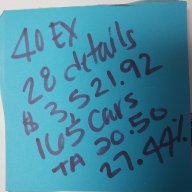 40 EX
28 details
$ 3,521.92
165 cars
TA 20.50
27.44%